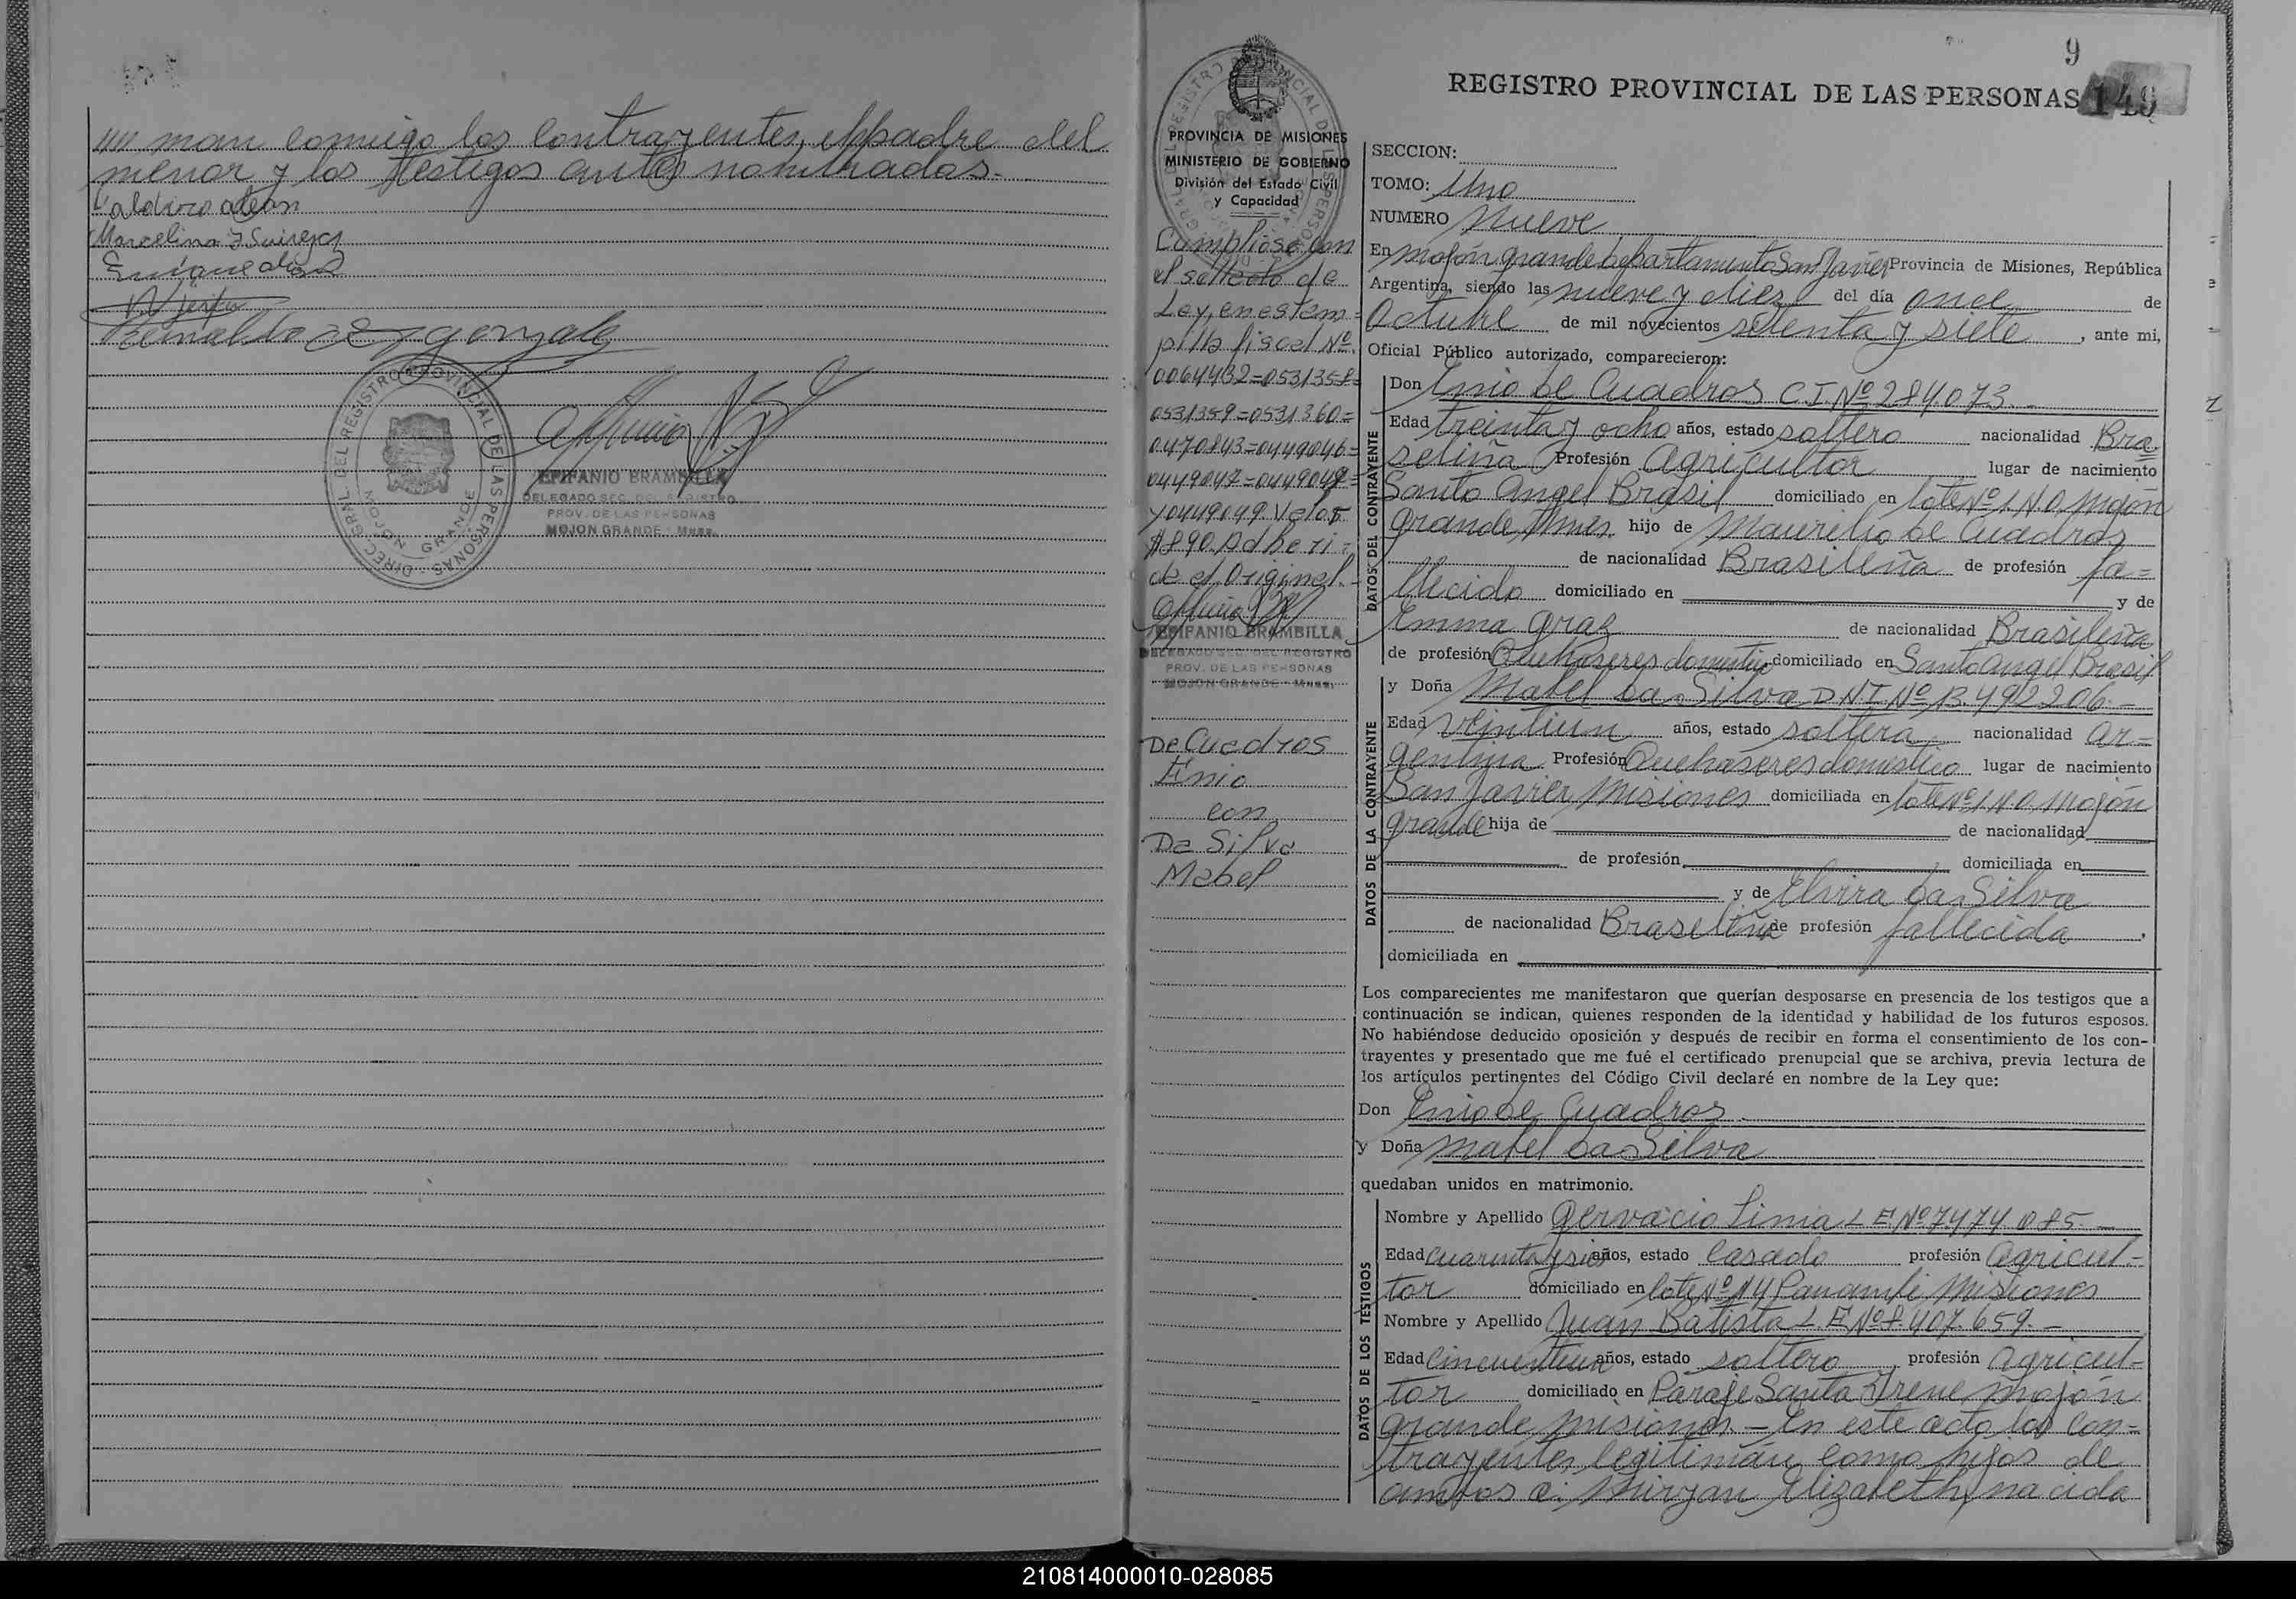 man comigo los contrayentes, el padre del
menor y los testigos antes nombrados.
Marcelina
Enrique
gonzalez
DIREC. GRAL. DEL REGISTRO PROVINCIAL DE LAS PERSONAS
MOJON GRANDE
EPIFANIO BRAMBILLA
DELEGADO SEC. DEL REGISTRO
PROV. DE LAS PERSONAS
MOJON GRANDE - Mnes.
9
REGISTRO PROVINCIAL DE LAS PERSONAS 149
PROVINCIA DE MISIONES
MINISTERIO DE GOBIERNO
División del Estado Civil
y Capacidad
Cumpliose con
el sellado de
Ley, en estam=
pilla fiscal Nº
0064432=0531358=
0531359=0531360=
0470843=0449046=
0449047=0449048=
y 0449049. Valor
$890. Adheri=
do el Original.
EPIFANIO BRAMBILLA
DELEGADO SEC. DEL REGISTRO
PROV. DE LAS PERSONAS
MOJON GRANDE - Mnes.
De Cuadros
Enio
con
Da Silva
Mabel
SECCION:
TOMO: Uno
NUMERO Nueve
En Mojón grande Departamento San Javier Provincia de Misiones, República
Argentina, siendo las nueve y diez del día once de
Octubre de mil novecientos setenta y siete, ante mi,
Oficial Público autorizado, comparecieron:
DATOS DEL CONTRAYENTE
Don Enio de Cuadros C.I. Nº 284.073.-
Edad treinta y ocho años, estado soltero nacionalidad Bra=
seliña Profesión Agricultor lugar de nacimiento
Santo Angel Brasil domiciliado en lote Nº 1. N.O. Mojón
grande, Mnes. hijo de Maurilio de Cuadros
de nacionalidad Brasileña de profesión fa=
llecido domiciliado en y de
Emma Graz de nacionalidad Brasileña
de profesión Quehaseres domestico domiciliado en Santo Angel Brasil
DATOS DE LA CONTRAYENTE
y Doña Mabel Da Silva D.N.I. Nº 13.492.206.-
Edad veintiun años, estado soltera nacionalidad Ar=
gentina Profesión Quehaseres domestico lugar de nacimiento
San Javier, Misiones domiciliada en lote Nº 1 N.O. Mojón
grande hija de de nacionalidad
de profesión, domiciliada en
y de Elvira Da Silva
de nacionalidad Braseliña de profesión fallecida,
domiciliada en
Los comparecientes me manifestaron que querían desposarse en presencia de los testigos que a
continuación se indican, quienes responden de la identidad y habilidad de los futuros esposos.
No habiéndose deducido oposición y después de recibir en forma el consentimiento de los con-
trayentes y presentado que me fué el certificado prenupcial que se archiva, previa lectura de
los artículos pertinentes del Código Civil declaré en nombre de la Ley que:
Don Enio de Cuadros
y Doña Mabel Da Silva
quedaban unidos en matrimonio.
DATOS DE LOS TESTIGOS
Nombre y Apellido Gervacio Lima L.E. Nº 7474.085.-
Edad cuarenta y seis años, estado casado profesión Agricul-
tor domiciliado en lote Nº 14 Panambi, Misiones
Nombre y Apellido Juan Batista L.E. Nº 8.407.659.-
Edad cincuentiun años, estado soltero, profesión Agricul-
tor domiciliado en Paraje Santa Irene, Mojón
grande, Misiones.- En este acto los con=
trayentes legitiman como hijos de
ambos a: Miryan Elizabeth, nacida
210814000010-028085